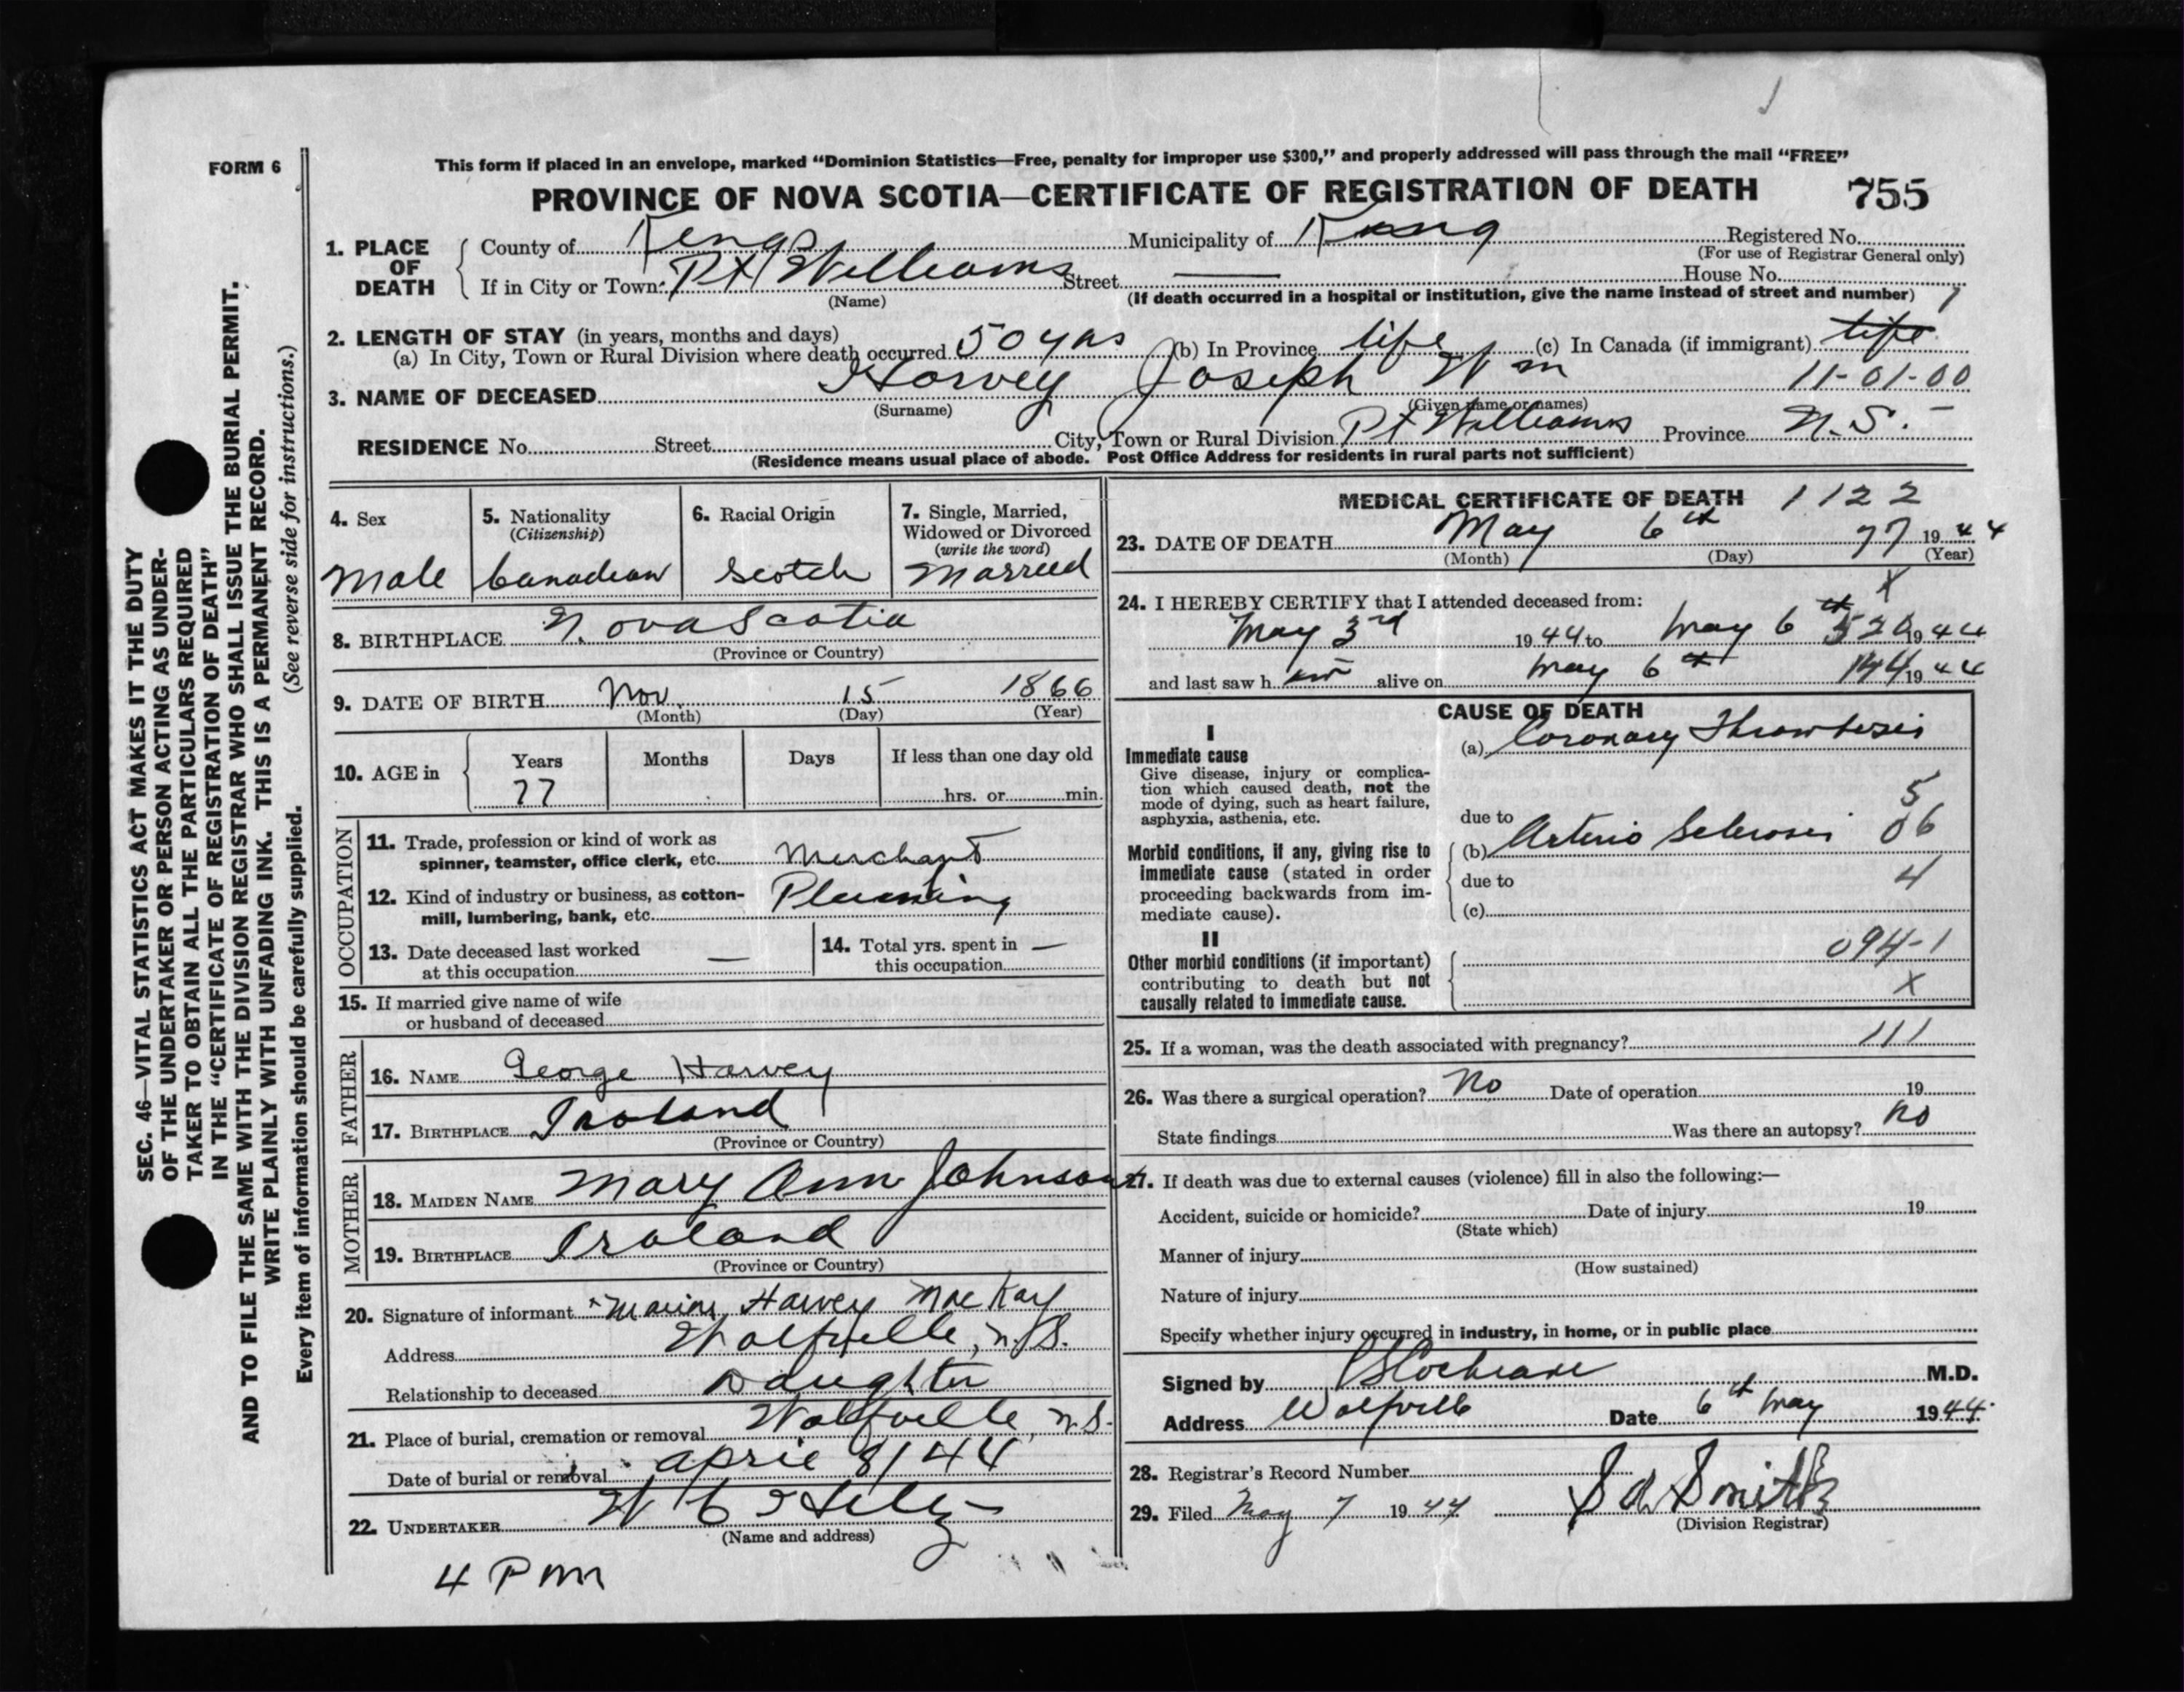 FORM 6
This form if placed in an envelope, marked "Dominion Statistics—Free, penalty for improper use $300," and properly addressed will pass through the mail "FREE"
PROVINCE OF NOVA SCOTIA—CERTIFICATE OF REGISTRATION OF DEATH 755
SEC. 46—VITAL STATISTICS ACT MAKES IT THE DUTY
OF THE UNDERTAKER OR PERSON ACTING AS UNDER-
TAKER TO OBTAIN ALL THE PARTICULARS REQUIRED
IN THE "CERTIFICATE OF REGISTRATION OF DEATH"
AND TO FILE THE SAME WITH THE DIVISION REGISTRAR WHO SHALL ISSUE THE BURIAL PERMIT.
WRITE PLAINLY WITH UNFADING INK. THIS IS A PERMANENT RECORD.
(See reverse side for instructions.)
Every item of information should be carefully supplied.
1. PLACE OF DEATH
County of Kings Municipality of King Registered No.
(For use of Registrar General only)
If in City or Town Pt Williams Street — House No.
(Name) (If death occurred in a hospital or institution, give the name instead of street and number) 1
2. LENGTH OF STAY (in years, months and days)
(a) In City, Town or Rural Division where death occurred 50 yrs (b) In Province life (c) In Canada (if immigrant) life
3. NAME OF DECEASED Harvey Joseph Wm 11-01-00
(Surname) (Given name or names)
RESIDENCE No. Street City, Town or Rural Division Pt Williams Province N.S.
(Residence means usual place of abode. Post Office Address for residents in rural parts not sufficient)
4. Sex Male
5. Nationality (Citizenship) Canadian
6. Racial Origin Scotch
7. Single, Married, Widowed or Divorced (write the word) Married
8. BIRTHPLACE Nova Scotia
(Province or Country)
9. DATE OF BIRTH Nov. 15 1866
(Month) (Day) (Year)
10. AGE in Years 77 Months Days If less than one day old
hrs. or min.
OCCUPATION
11. Trade, profession or kind of work as
spinner, teamster, office clerk, etc. Merchant
12. Kind of industry or business, as cotton-
mill, lumbering, bank, etc. Plumbing
13. Date deceased last worked
at this occupation —
14. Total yrs. spent in —
this occupation
15. If married give name of wife
or husband of deceased
FATHER
16. NAME George Harvey
17. BIRTHPLACE Ireland
(Province or Country)
MOTHER
18. MAIDEN NAME Mary Ann Johnson
19. BIRTHPLACE Ireland
(Province or Country)
20. Signature of informant Marion Harvey MacKay
Address Wolfville, N.S.
Relationship to deceased Daughter
21. Place of burial, cremation or removal Wolfville, N.S.
Date of burial or removal April 8/44
22. UNDERTAKER W C
(Name and address)
4 Pm
MEDICAL CERTIFICATE OF DEATH 1122
23. DATE OF DEATH May 6th 77 1944
(Month) (Day) (Year)
24. I HEREBY CERTIFY that I attended deceased from: X
May 3rd 1944 to May 6th 520 1944
and last saw h im alive on May 6th 144 1944
CAUSE OF DEATH
I
Immediate cause
Give disease, injury or complica-
tion which caused death, not the
mode of dying, such as heart failure,
asphyxia, asthenia, etc.
(a) Coronary Thrombosis
5
due to
(b) Arterio Sclerosis 06
Morbid conditions, if any, giving rise to
immediate cause (stated in order
proceeding backwards from im-
mediate cause).
due to 4
(c)
II
Other morbid conditions (if important)
contributing to death but not
causally related to immediate cause.
094-1
X
25. If a woman, was the death associated with pregnancy? 111
26. Was there a surgical operation? No Date of operation 19
State findings Was there an autopsy? No
27. If death was due to external causes (violence) fill in also the following:—
Accident, suicide or homicide? Date of injury 19
(State which)
Manner of injury
(How sustained)
Nature of injury
Specify whether injury occurred in industry, in home, or in public place
Signed by Cochrane M.D.
Address Wolfville Date 6th May 1944
28. Registrar's Record Number
29. Filed May 7 1944 Smith
(Division Registrar)